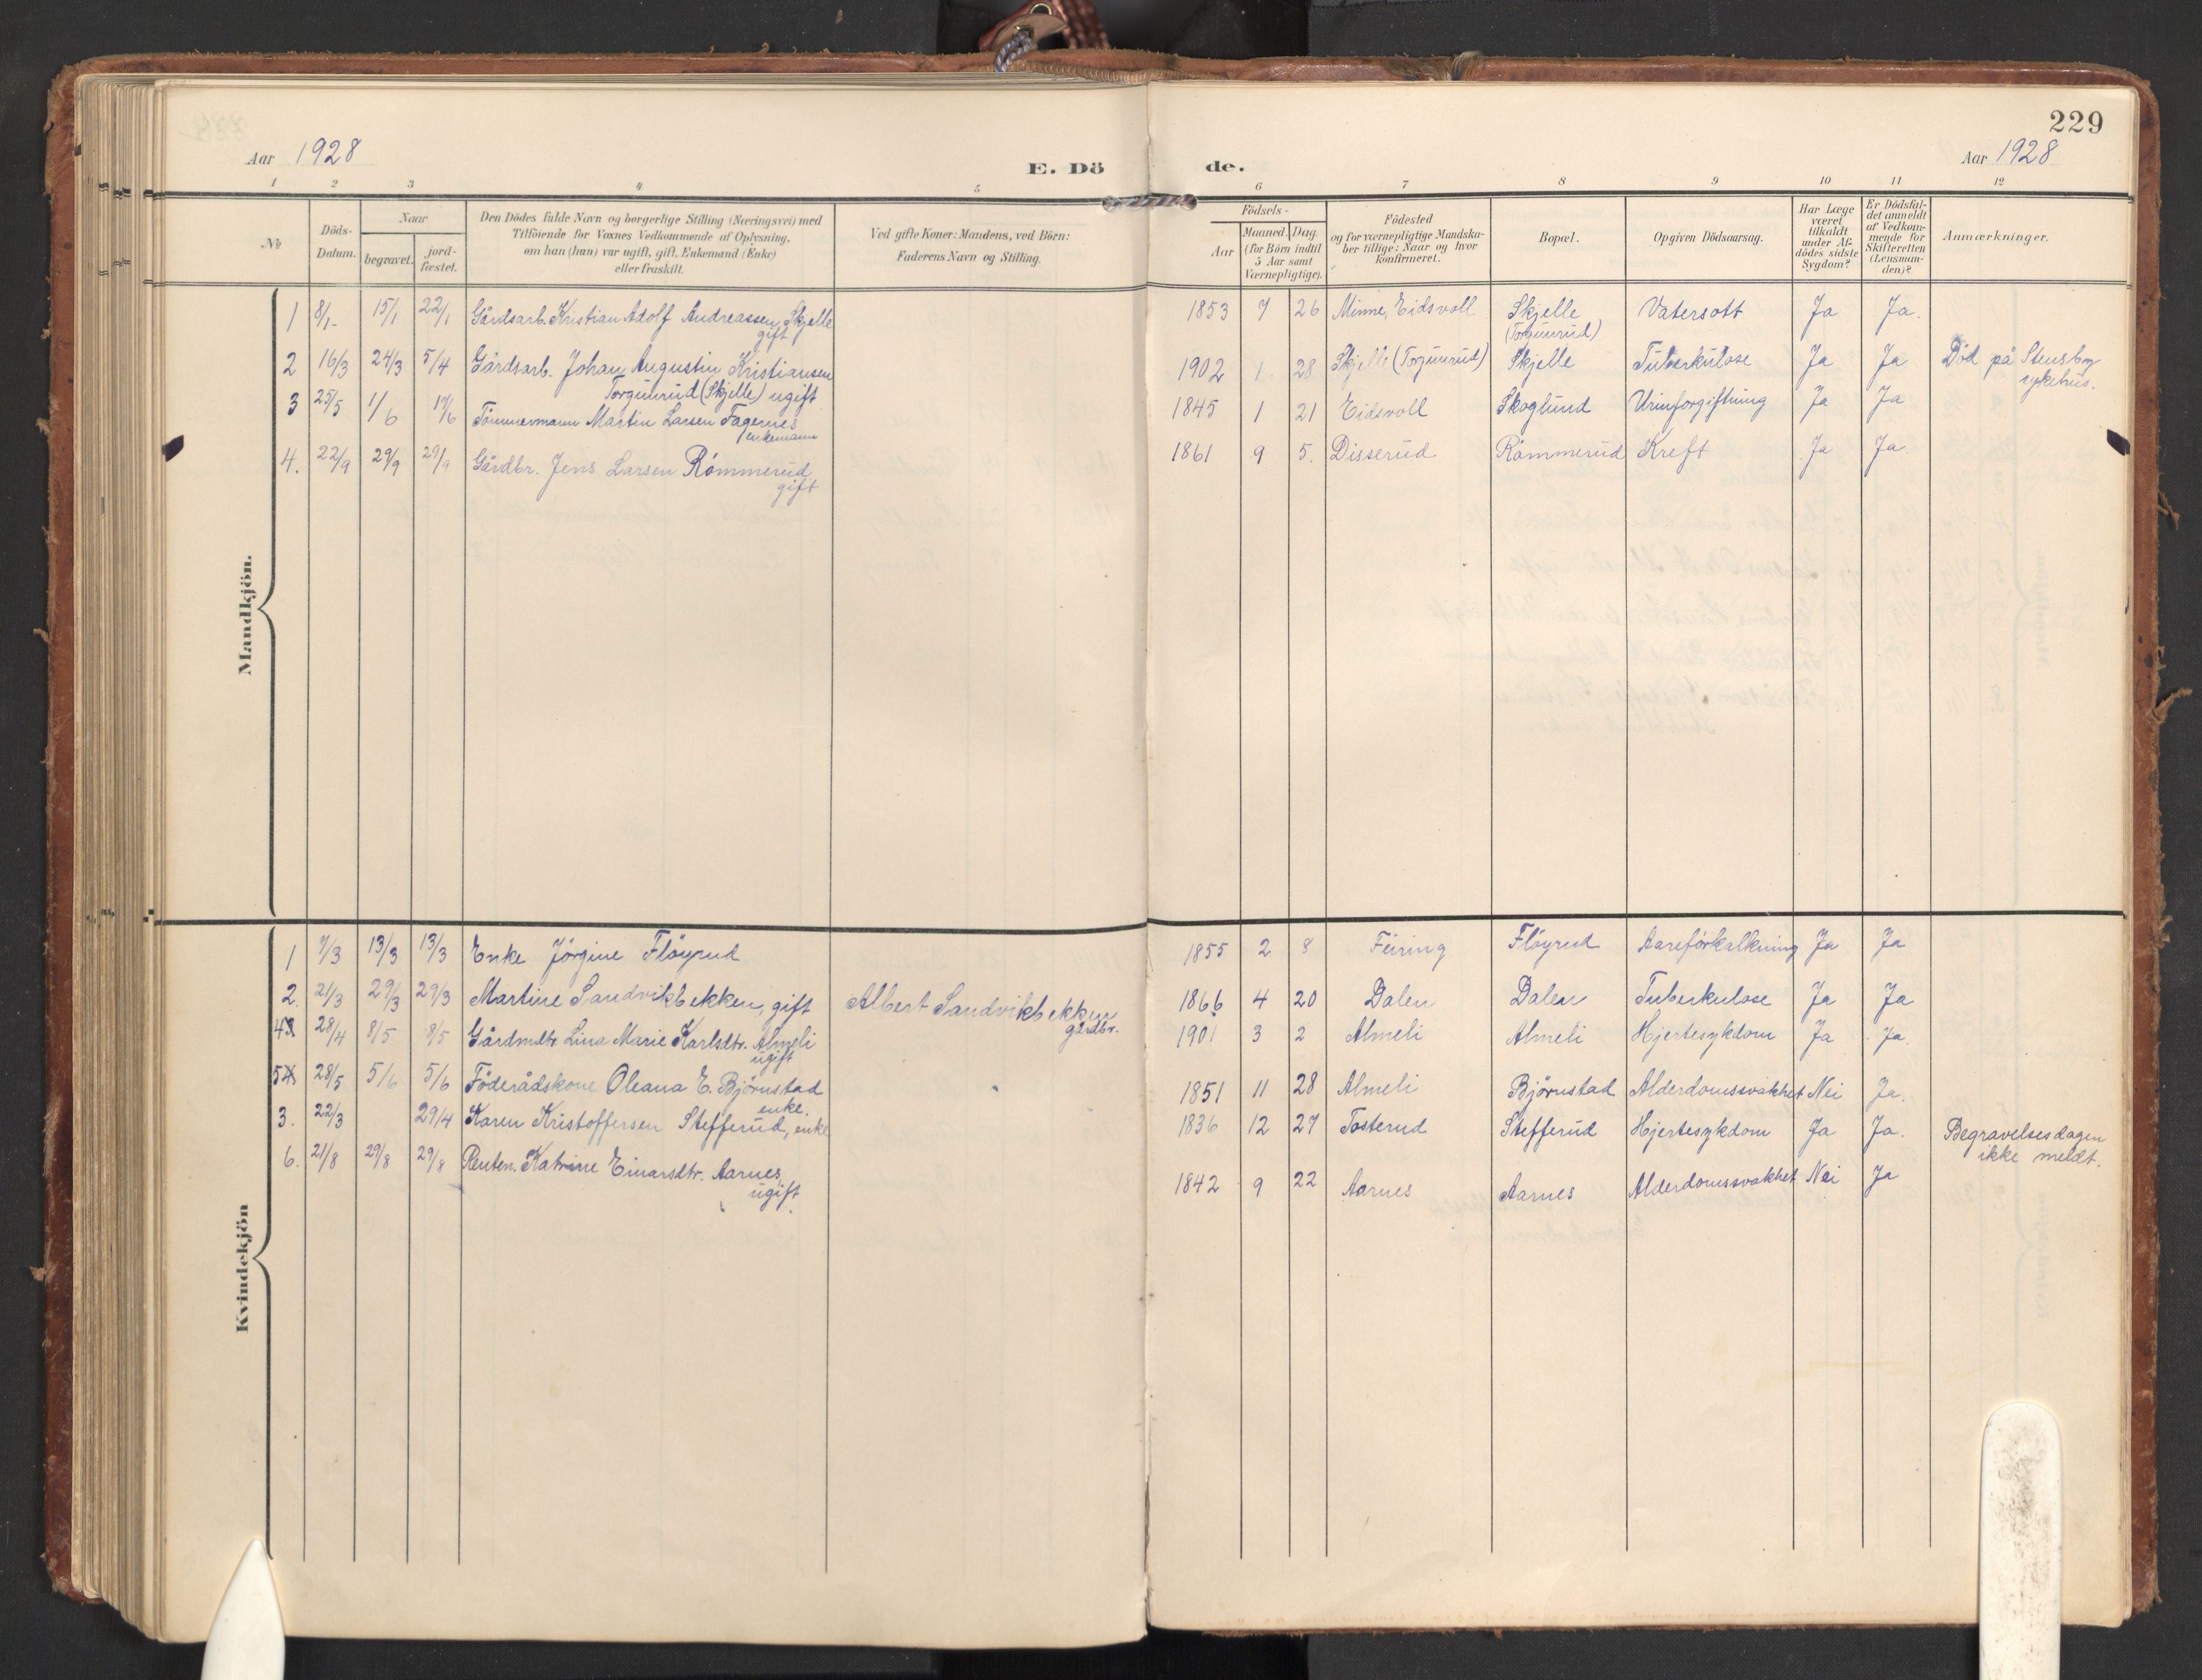 229
Aar 1928
E. Dö de.
Aar 1928
1 2 3 4 5 6 7 8 9 10 11 12
No
Döds-Datum.
Naar
begravet.
jord-fæstet.
Den Dödes fulde Navn og borgerlige Stilling (Næringsvei) med
Tilföiende for Voxnes Vedkommende af Oplysning,
om han (hun) var ugift, gift, Enkemand (Enke)
eller fraskilt.
Ved gifte Koner: Mandens, ved Börn:
Faderens Navn og Stilling.
Födsels-
Aar
Maaned. Dag.
(for Börn indtil
5 Aar samt
Værnepligtige).
Födested
og for værnepligtige Mandska-
ber tillige: Naar og hvor
konfirmeret.
Bopæl.
Opgiven Dödsaarsag.
Har Læge
været
tilkaldt
under Af-
dödes sidste
Sygdom?
Er Dödsfal-
det anmeldt
af Vedkom-
mende for
Skifteretten
(Lensman-
den)?
Anmærkninger.
Mandkjön.
1 8/1- 15/1 22/1 Gårdsarb. Kristian Adolf Andreassen, Skjelle 1853 7 26 Minne, Eidsvoll Skjelle Vatersott Ja Ja.
gift (Torgunrud)
2 16/3 24/3 5/4 Gårdsarb. Johan Augustin Kristiansen 1902 1. 28 Skjelle (Torgunrud) Skjelle Tuberkulose Ja Ja Død på Stensby
Torgunrud (Skjelle) ugift sykehus.
3 25/5 1/6 Tømmermann Martin Larsen Fagernes 1845 1 21 Eidsvoll Skoglund Urinforgiftning Ja Ja
enkemann
4. 22/9 29/9 29/9 Gårdbr. Jens Larsen Rømmerud 1861 9 5. Disserud Rømmerud Kreft Ja Ja.
gift
Kvindekjön
1 7/3 13/3 13/3 Enke Jørgine Fløyrud 1855 2 8 Feiring Fløyrud Aareforkalkning Ja Ja
2. 21/3 29/3 29/3 Martine Sandvikbekken, gift Albert Sandvikbekken 1866 4 20 Dalen Dalen Tuberkulose Ja Ja
gårdbr.
4 28/4 8/5 8/5 Gårdmdtr. Lina Marie Karlsdtr. Almeli 1901 3 2 Almeli Almeli Hjertesykdom Ja Ja.
ugift
5 28/5 5/6 5/6 Föderådskone Oleana E. Björnstad 1851 11 28 Almeli Björnstad Alderdomssvakhet Nei Ja.
enke.
3. 22/3 29/4 Karen Kristoffersen Stefferud, enke 1836 12 27 Tosterud Stefferud Hjertesykdom Ja Ja. Begravelsesdagen
ikke meldt.
6. 21/8 29/8 29/8 Renten. Katrine Einarsdtr. Aarnes, 1842 9 22 Aarnes Aarnes Alderdomssvakhet Nei Ja
ugift.